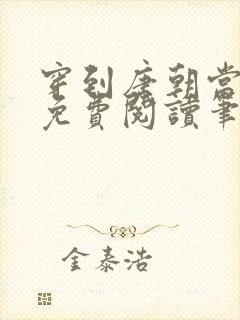 穿到唐朝當
免費閱讀筆
金泰浩